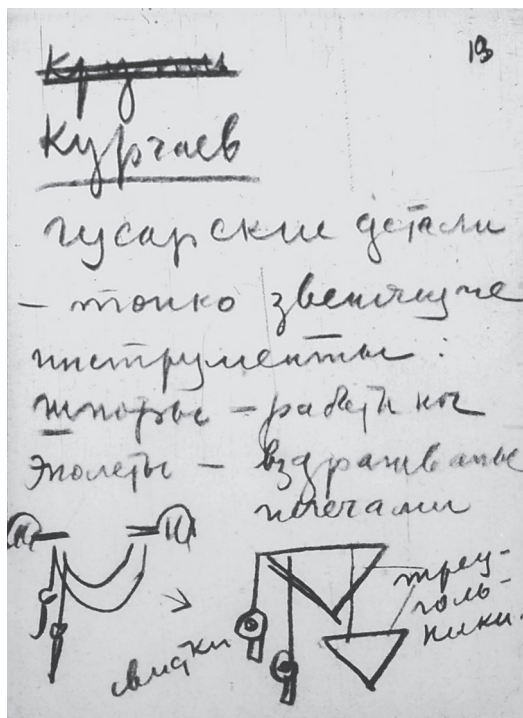 19
Курчаев
гусарские детали
– тонко звенящие
инструменты:
шпоры – работы ног
Эполеты – вздрагиванье
плечами
свистки
треу-
голь-
ники.